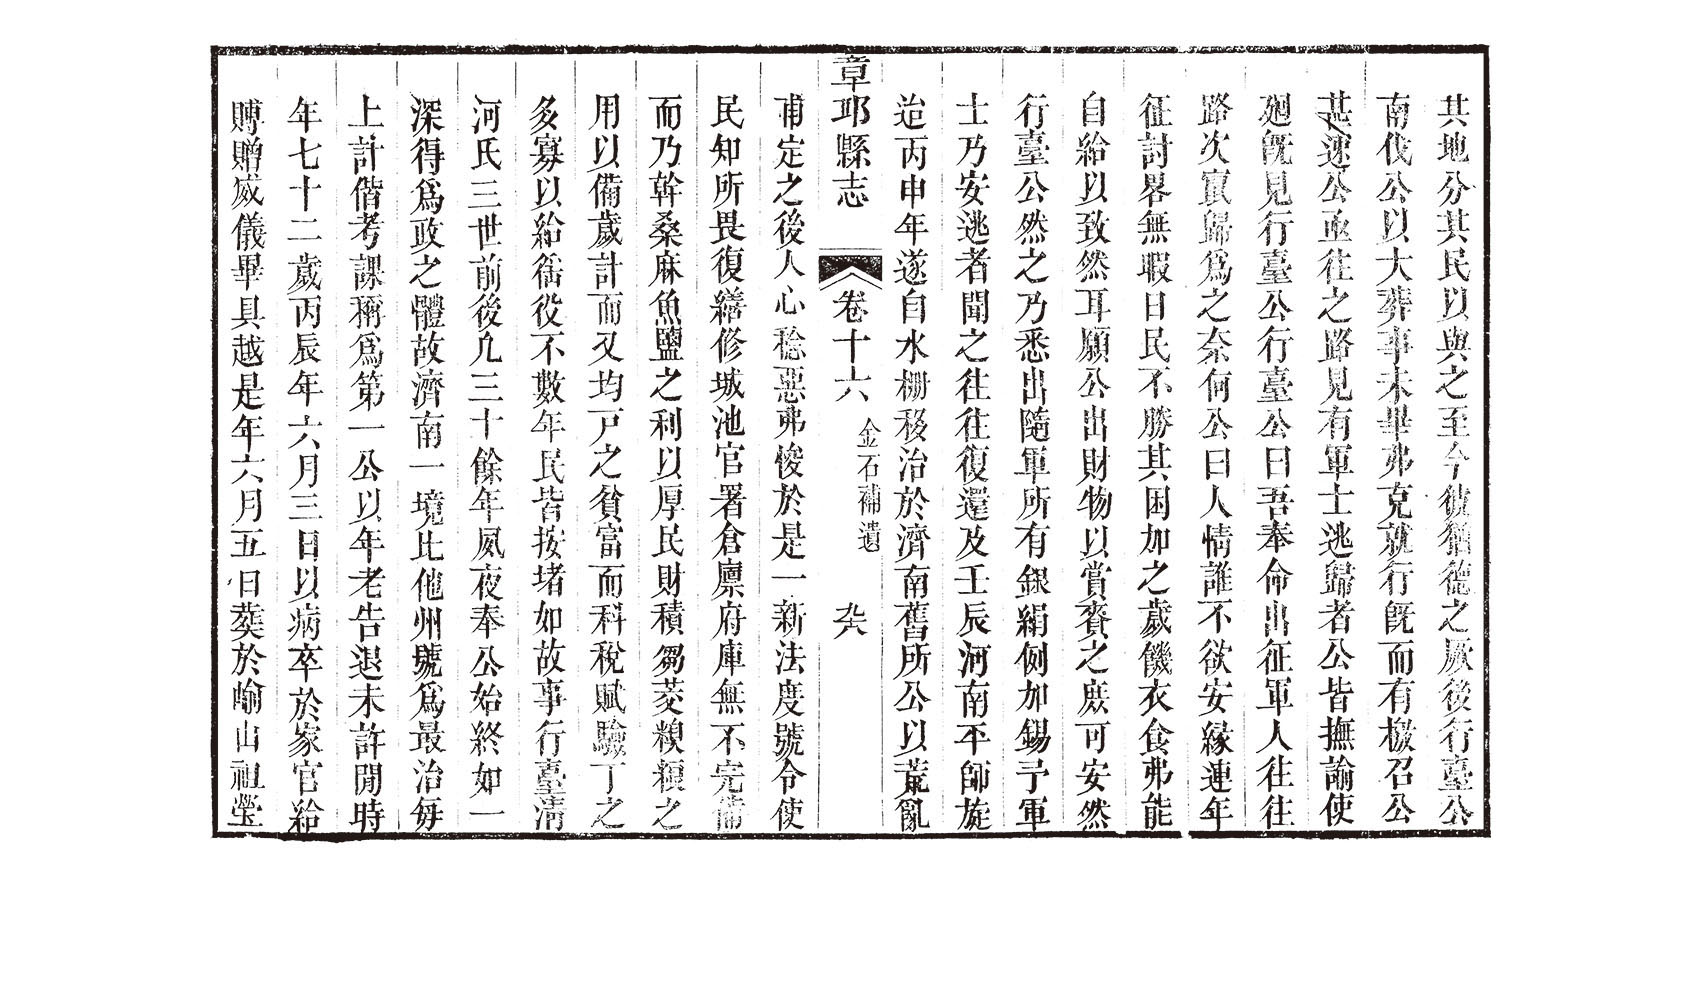 其地分其民以與之至今彼猶德之厥後行臺公
南伐公以大葬事未畢弗克就行旣而有檄召公
甚速公亟往之路見有軍士逃歸者公皆撫諭使
廻旣見行臺公行臺公曰吾奉命出征軍人往往
路次竄歸爲之奈何公曰人情誰不欲安緣連年
征討畧無暇日民不勝其困加之歲饑衣食弗能
自給以致然耳願公出財物以賞賚之庶可安然
行臺公然之乃悉出隨軍所有銀絹例加錫予軍
士乃安逃者聞之往往復還及壬辰河南平師旋
迨丙申年遂自水栅移治於濟南舊所公以荒亂
章邱縣志 卷十六 金石補遺 九六
甫定之後人心稔惡弗悛於是一新法度號令使
民知所畏復繕修城池官署倉廪府庫無不完備
而乃幹桑麻魚鹽之利以厚民財積芻茭糗粮之
用以備歲計而又均戸之貧富而科稅賦驗丁之
多寡以給徭役不數年民皆按堵如故事行臺淸
河氏三世前後凡三十餘年夙夜奉公始終如一
深得爲政之體故濟南一境比他州號爲最治每
上計偕考課稱爲第一公以年老告退未許閒時
年七十二歲丙辰年六月三日以病卒於家官給
賻贈威儀畢具越是年六月五日葬於崳山祖塋